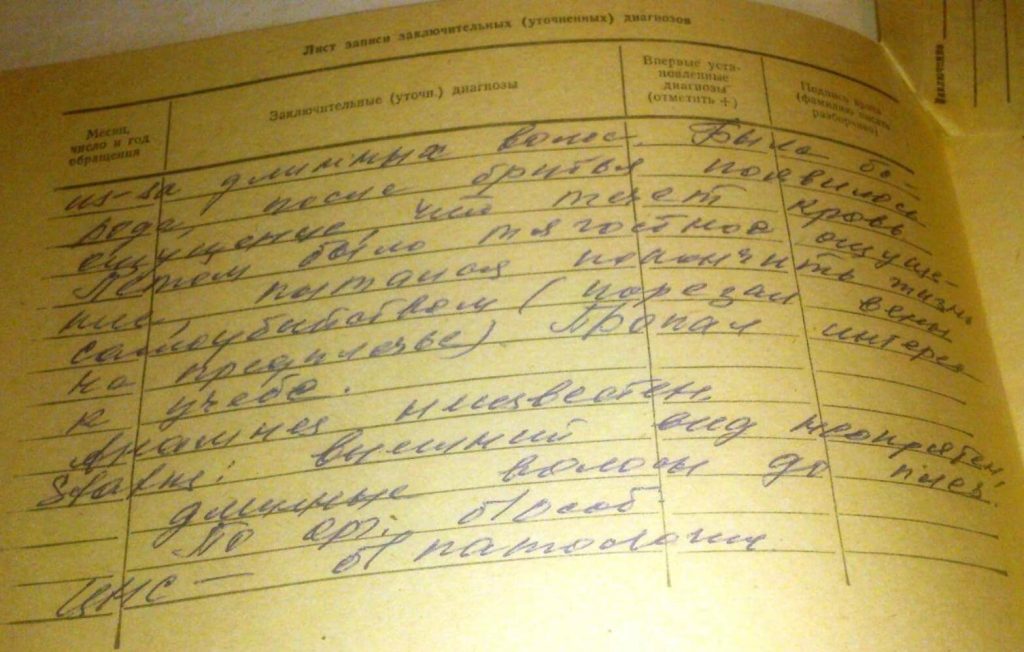 Лист записи заключительных (уточненных) диагнозов
Месяц, число и год обращения
Заключительные (уточн.) диагнозы
Впервые уста-
новленные
диагнозы
(отметить +)
Подпись врача
(фамилию писать
разборчиво)
из-за длинных волос. Была бо-
рода, после бритья появилось
ощущение, что течет кровь
Летом было тягостное ощуще-
ние, пытался покончить жизнь
самоубийством (порезал вены
на предплечье) Пропал интерес
к учебе.
Анамнез неизвестен.
Status: внешний вид неопрятен,
длинные волосы до плеч.
По орг. б/особ.
ЦНС — б/патологии